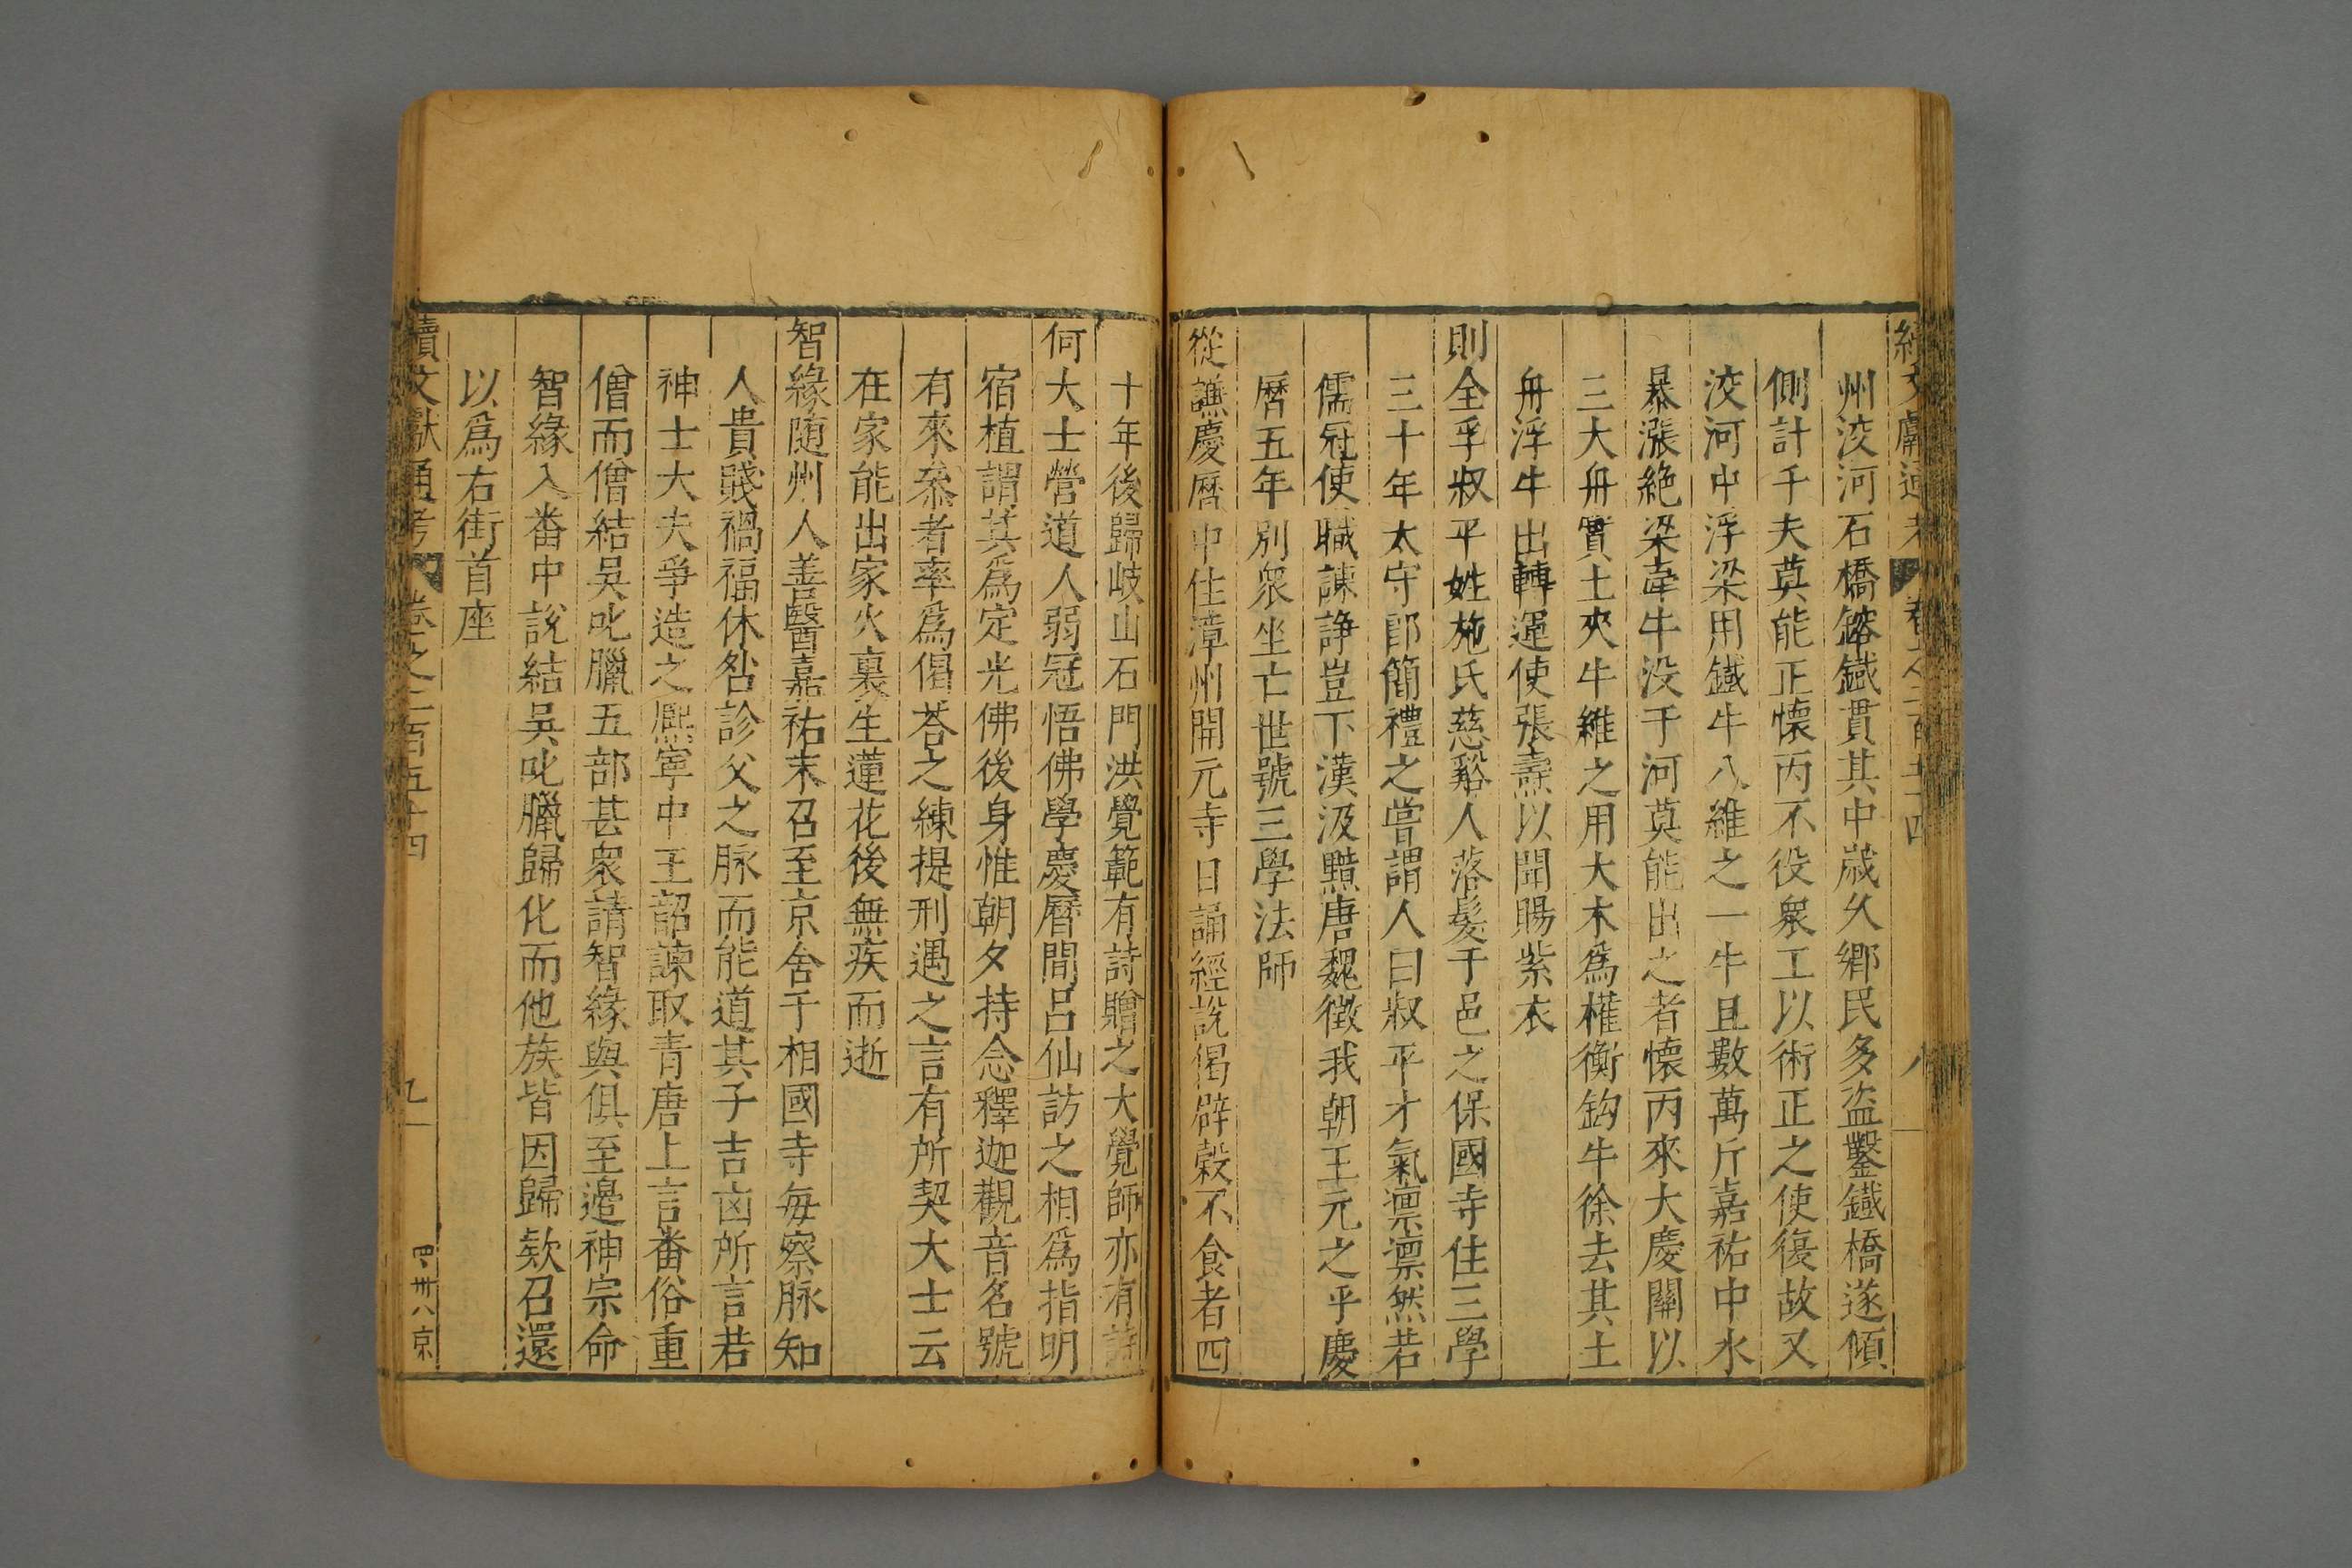 州洨河石橋鎔鐵貫其中歲久鄉民多盜鑿鐵橋遂傾
側計千夫莫能正懷丙不役衆工以術正之使復故又
洨河中浮梁用鐵牛八維之一牛且數萬斤嘉祐中水
暴漲絶梁牽牛没于河莫能出之者懷丙來大慶關以
三大舟實土夾牛維之用大木爲權衡鈎牛徐去其土
舟浮牛出轉運使張燾以聞賜紫衣
則全字叔平姓施氏慈谿人落髮于邑之保國寺住三學
三十年太守郎簡禮之嘗謂人曰叔平才氣凛凛然若
儒冠使職諫諍豈下漢汲黯唐魏徵我朝王元之乎慶
曆五年別衆坐亡世號三學法師
從謙慶曆中住漳州開元寺日誦經說偈辟穀不食者四
十年後歸岐山石門洪覺範有詩贈之大覺師亦有詩
何大士營道人弱冠悟佛學慶曆間呂仙訪之相爲指明
宿植謂其爲定光佛後身惟朝夕持念釋迦觀音名號
有來叅者率爲偈荅之練提刑遇之言有所契大士云
在家能出家火裏生蓮花後無疾而逝
智緣随州人善醫嘉祐末召至京舍于相國寺每察脉知
人貴賤禍福休咎診父之脉而能道其子吉凶所言若
神士大夫爭造之熙寧中王韶諫取青唐上言番俗重
僧而僧結吳叱臘五部甚衆請智緣與俱至邊神宗命
智緣入番中說結吳叱臘歸化而他族皆因歸欵召還
以爲右街首座
續文獻通考 卷之二百五十四 九 四卅八京